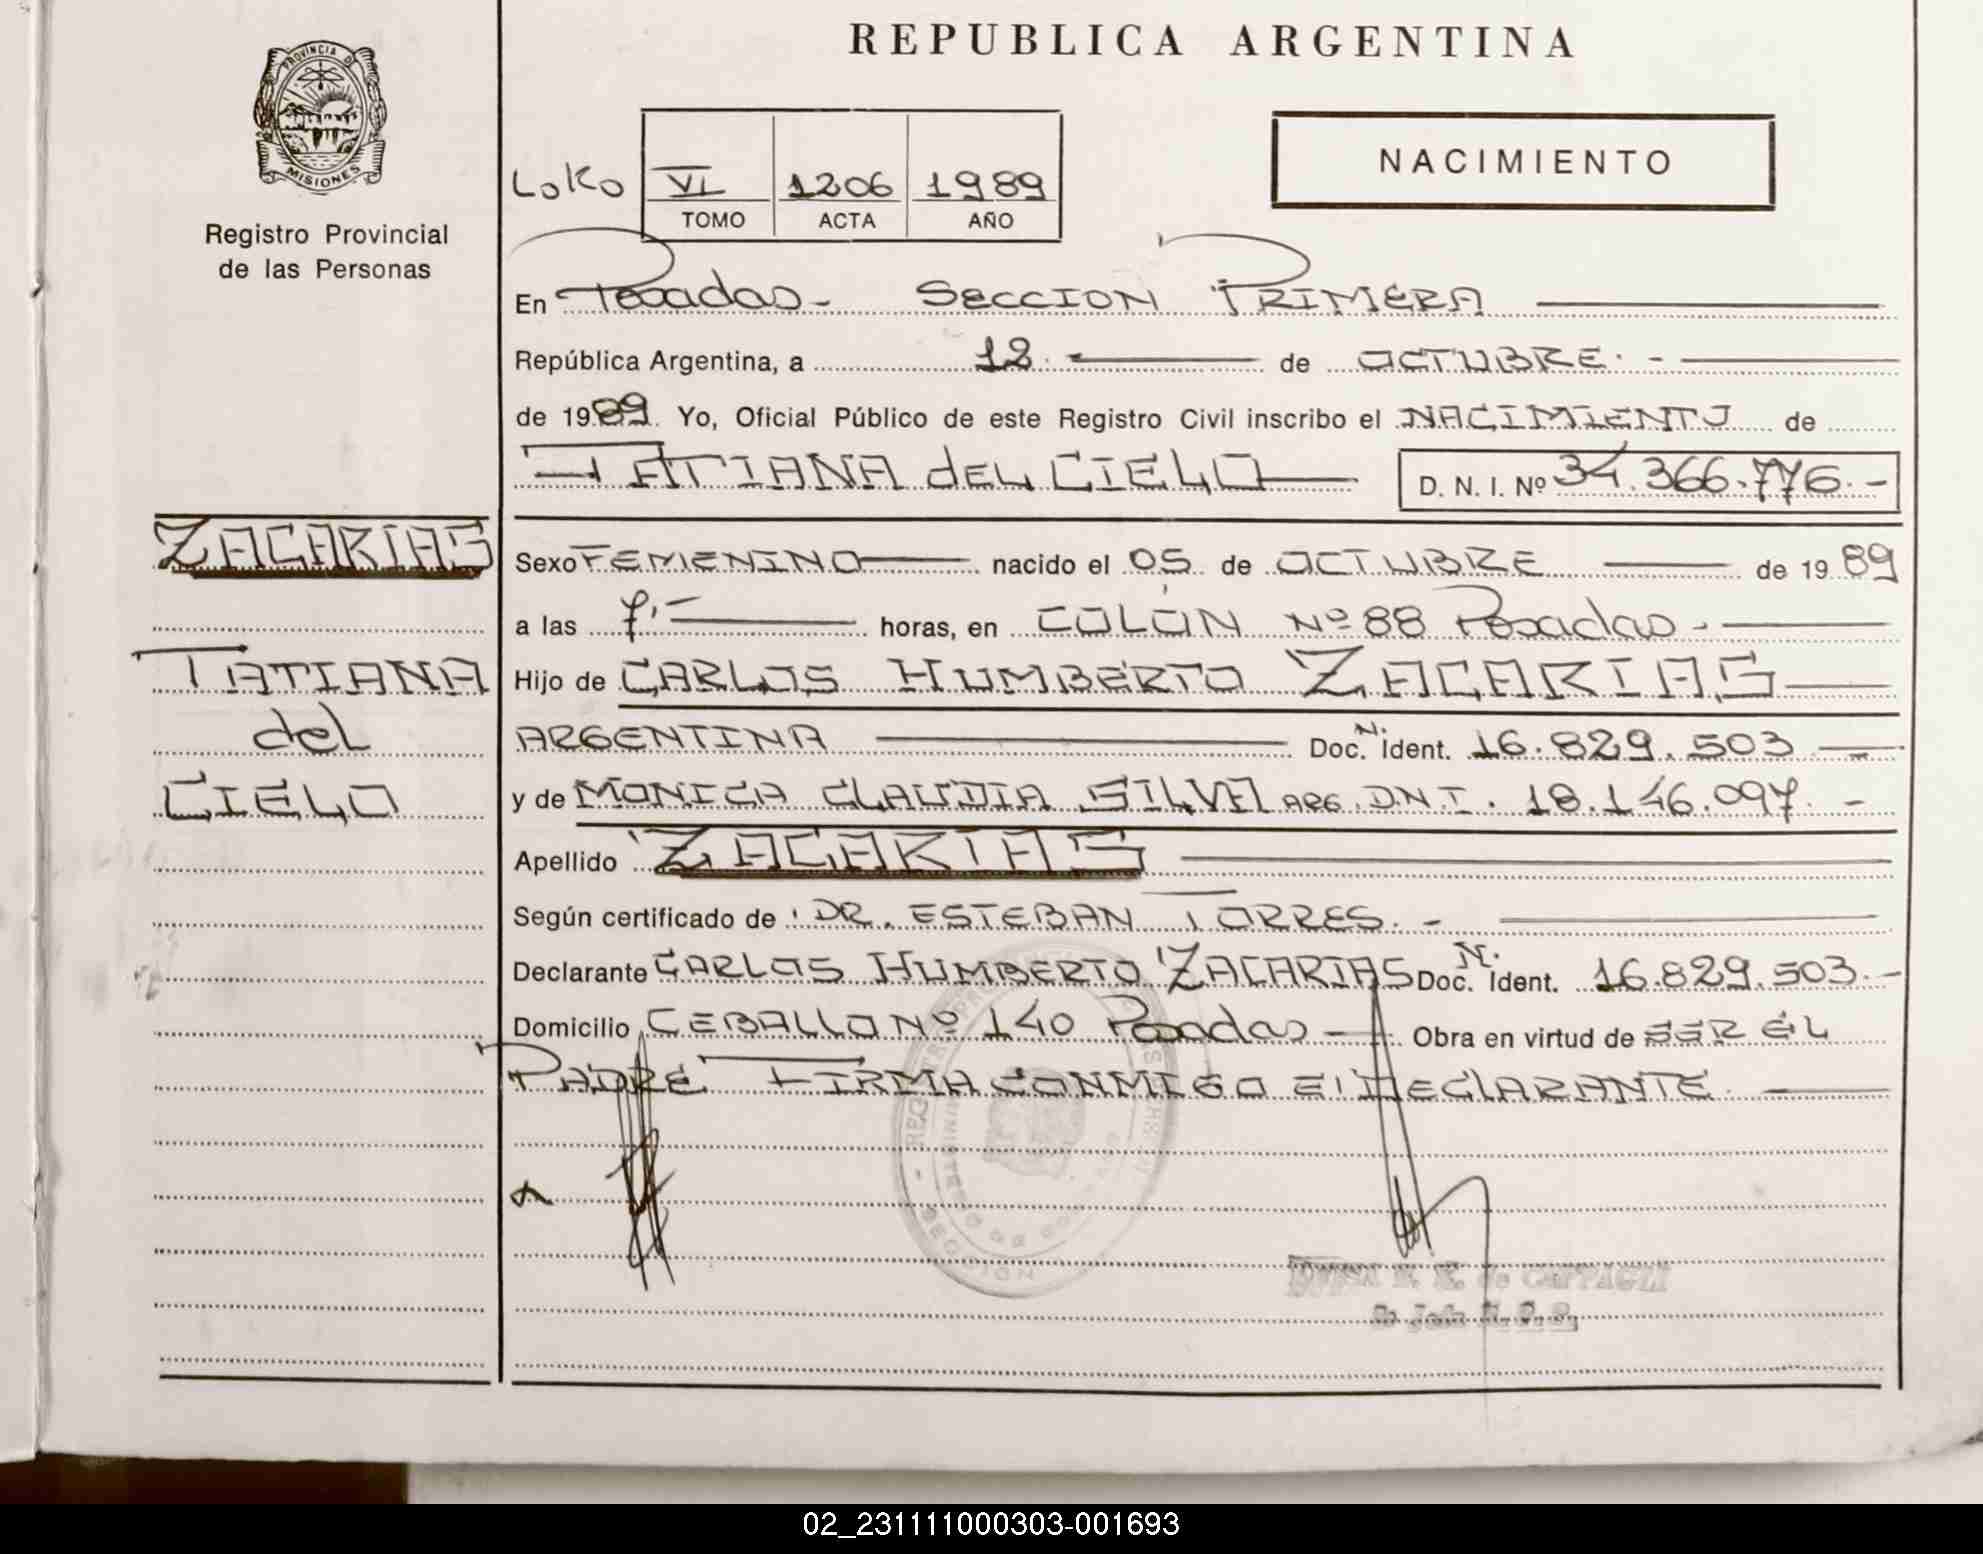 REPUBLICA ARGENTINA
PROVINCIA D
MISIONES
Registro Provincial
de las Personas
LoKo VI 1206 1989
TOMO ACTA AÑO
NACIMIENTO
En Posadas- SECCION PRIMERA
República Argentina, a 12. de OCTUBRE. -
de 1989. Yo, Oficial Público de este Registro Civil inscribo el NACIMIENTO de
TATIANA dEL CIELO D. N. I. Nº 34.366.776.-
ZACARIAS
TATIANA
del
CIELO
Sexo FEMENINO nacido el 05 de OCTUBRE de 19 89
a las 7,- horas, en COLÓN Nº 88 Posadas-
Hijo de CARLOS HUMBERTO ZACARIAS
ARGENTINA Doc. N. Ident. 16.829.503
y de MONICA CLAUDIA SILVA ARG. D.N.I. 18.146.097. -
Apellido ZACARIAS
Según certificado de DR. ESTEBAN TORRES. -
Declarante CARLOS HUMBERTO ZACARIAS Doc. N. Ident. 16.829.503.-
Domicilio CEBALLO Nº 140 Posadas Obra en virtud de SER EL
PADRE FIRMA CONMIGO El DEClARANTE.
SECCION
de CAPPAGLI
02_231111000303-001693